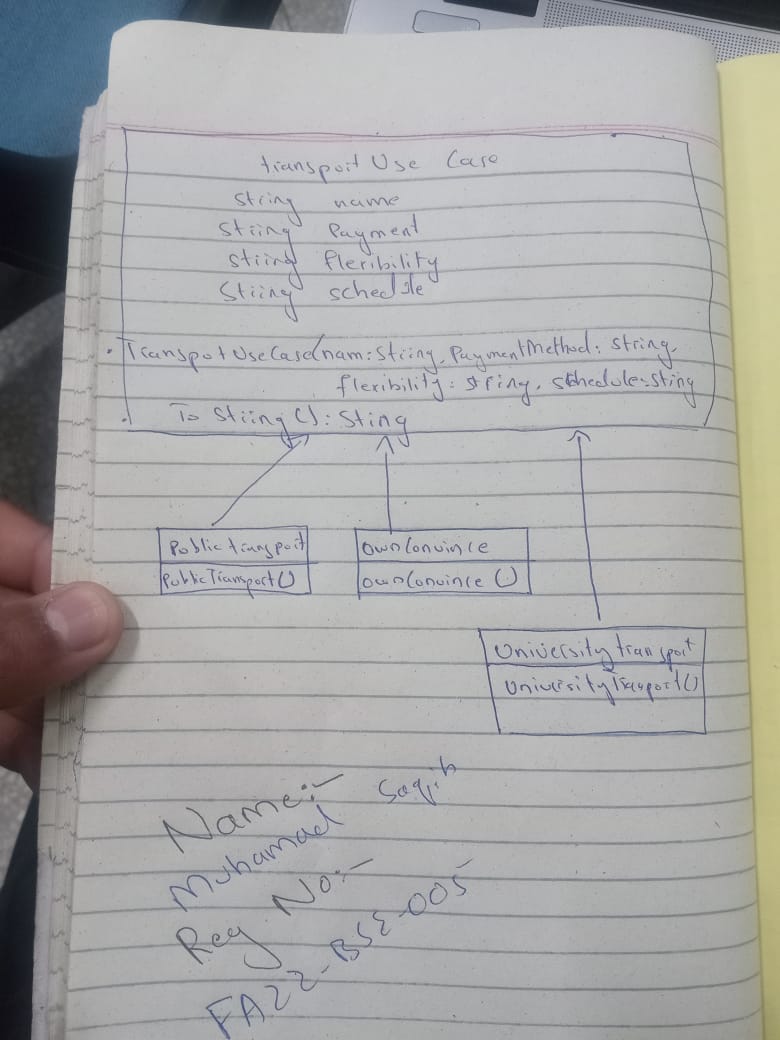 transport Use Case
string name
string Payment
string flexibility
string schedule
TranspotUseCase(nam:string, PaymentMethod: string,
flexibility: string, schedule:sting
To String(): Sting
Public transport
PublicTransport()
own Convince
own Convince ()
University transport
University Transport()
Name:-
Muhamad Saqib
Reg No:-
FA22-BSE-005